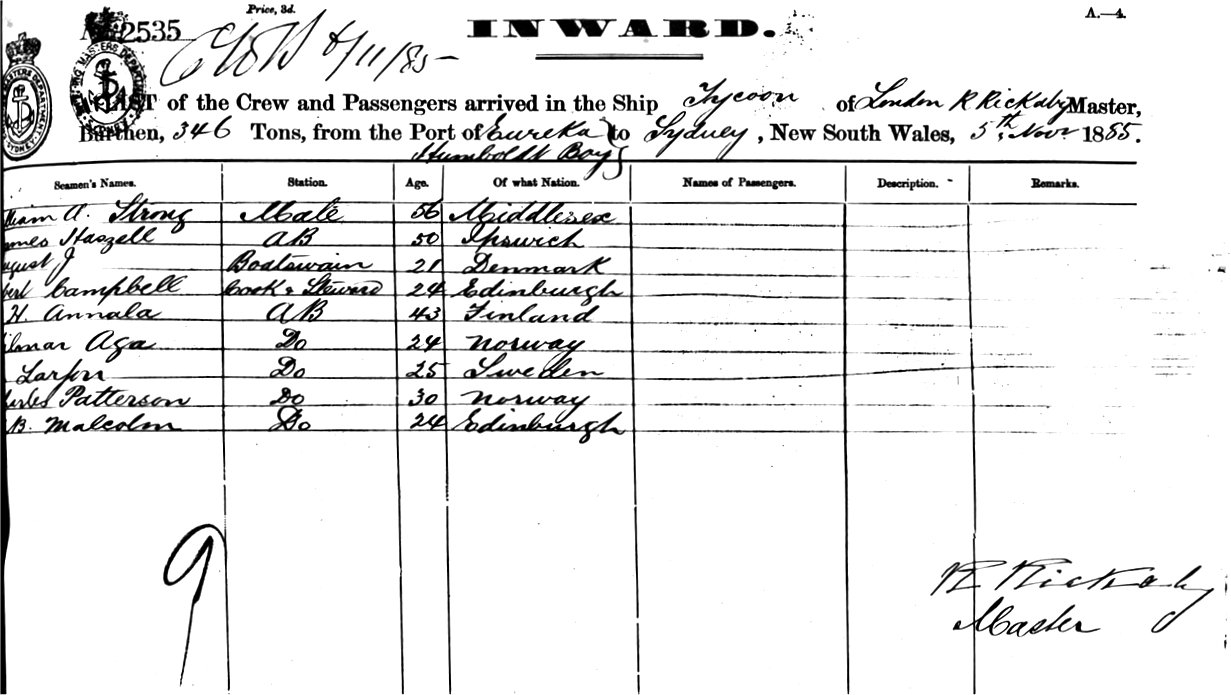 Price, 3d.
A.—4.
2535
INWARD.
6/11/85
LIST of the Crew and Passengers arrived in the Ship Tycoon of London R Rickaby Master,
Burthen, 346 Tons, from the Port of Eureka to Sydney, New South Wales, 5th Novr 1885.
Humboldt Bay
Seamen's Names. Station. Age. Of what Nation. Names of Passengers. Description. Remarks.
lliam A. Strong Mate 56 Middlesex
ames Haszell AB 50 Ipswich
ugust J Boatswain 21 Denmark
bert Campbell Cook & Steward 24 Edinburgh
H. Annala AB 43 Finland
ilmar Aga Do 24 Norway
Do 25 Sweden
harles Patterson Do 30 Norway
B. Malcolm Do 24 Edinburgh
9
R Rickaby
Master